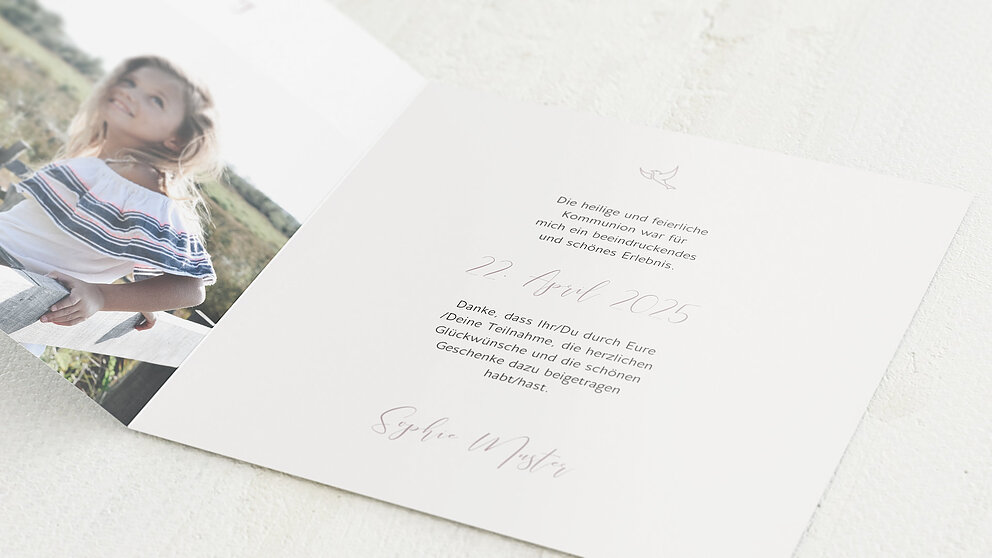 Die heilige und feierliche
Kommunion war für
mich ein beeindruckendes
und schönes Erlebnis.
22. April 2025
Danke, dass Ihr/Du durch Eure
/Deine Teilnahme, die herzlichen
Glückwünsche und die schönen
Geschenke dazu beigetragen
habt/hast.
Sophie Muster